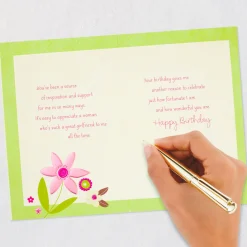 You've been a source
of inspiration and support
for me in so many ways.
It's easy to appreciate a woman
who's such a great girlfriend to me
all the time.
Your birthday gives me
another reason to celebrate
just how fortunate I am
and how wonderful you are.
Happy Birthday